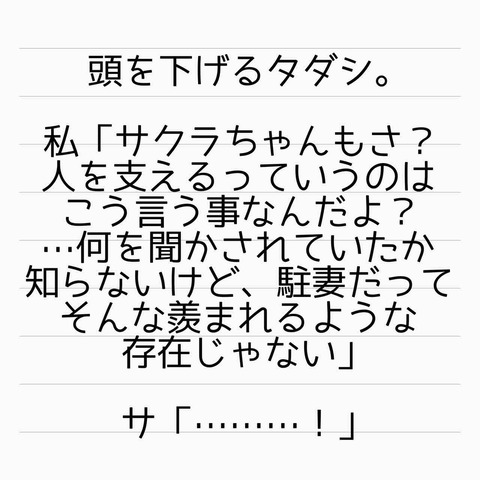 頭を下げるタダシ。
私「サクラちゃんもさ？
人を支えるっていうのは
こう言う事なんだよ？
…何を聞かされていたか
知らないけど、駐妻だって
そんな羨まれるような
存在じゃない」
サ「………！」